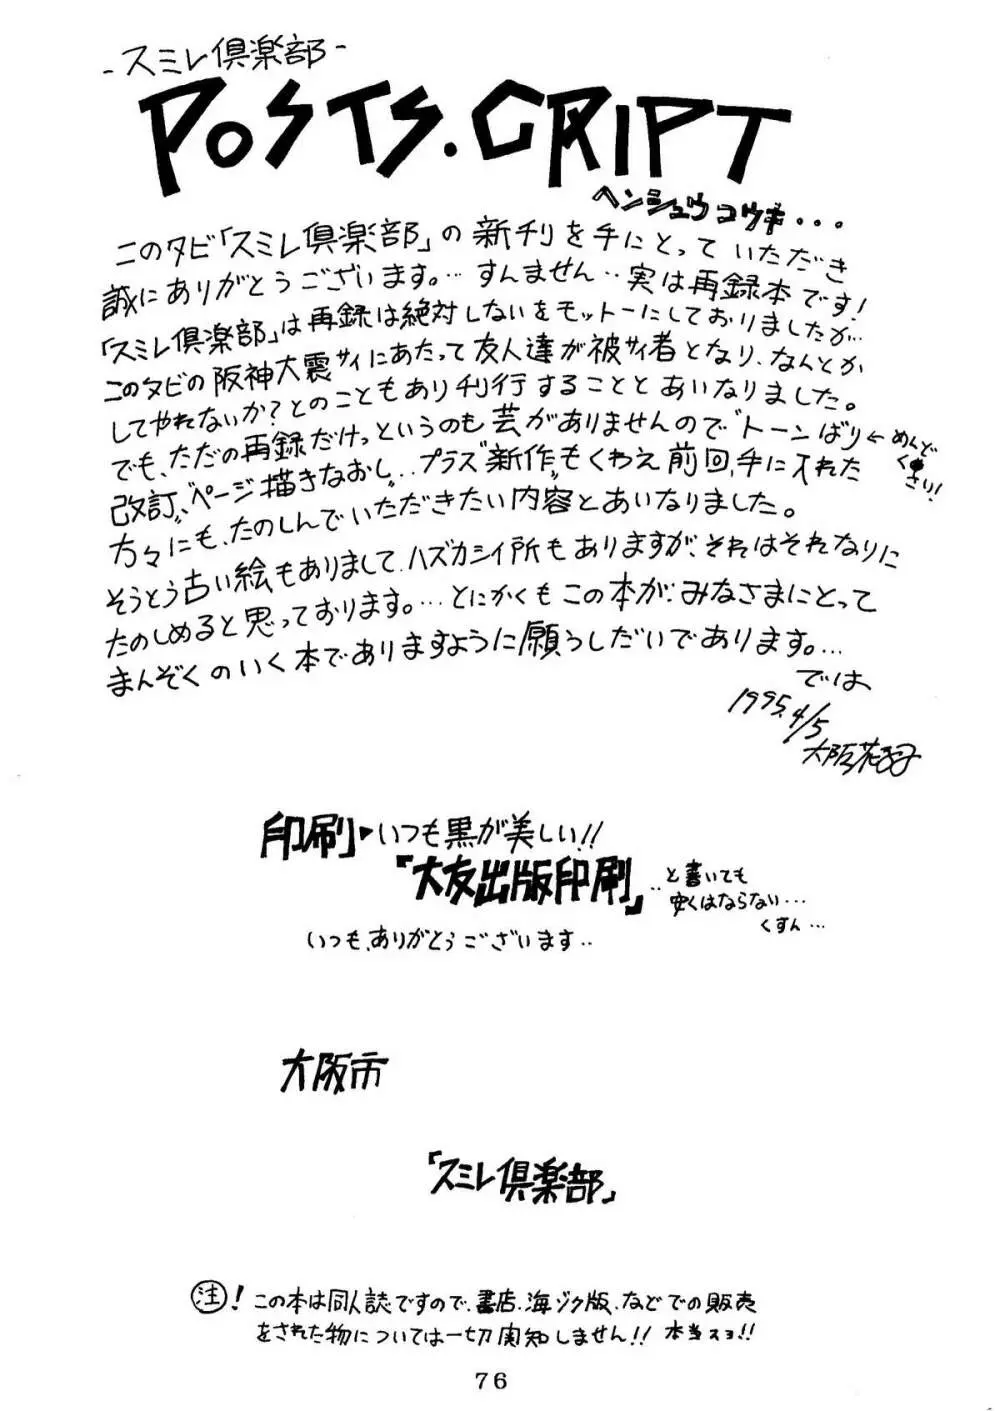 -スミレ倶楽部-
POSTS.CRIPT
ヘンシュウコウキ...
このタビ「スミレ倶楽部」の新刊を手にとっていただき
誠にありがとうございます。… すんません‥実は再録本です!
「スミレ倶楽部」は再録は絶対しないをモットーにしておりましたが…
このタビの阪神大震サイにあたって友人達が被サイ者となり、なんとか
してやれないか?とのこともあり刊行することとあいなりました。
でも、ただの再録だけっというのも芸がありませんので"トーンばり←めんどくさい!
改訂"、"ページ描きなおし"‥プラス"新作"もくわえ前回、手に入れた
方々にも、たのしんでいただきたい内容とあいなりました。
そうとう古い絵もありまして、ハズカシイ所もありますが、それはそれなりに
たのしめると思っております。…とにかくもこの本が、みなさまにとって
まんぞくのいく本でありますように願うしだいであります。…
では、
1995.4/5
大阪花子
印刷▶いつも黒が美しい!!
『大友出版印刷』‥と書いても
安くはならない…
くすん…
いつも、ありがとうございます‥
大阪市
「スミレ倶楽部」
注! この本は同人誌ですので、書店、海ゾク版、などでの販売
をされた物については一切関知しません!! 本当スヨ!!
76